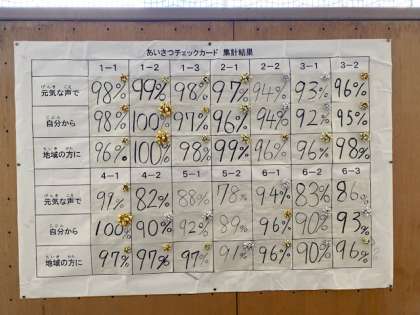 あいさつチェックカード 集計結果
1-1 1-2 1-3 2-1 2-2 3-1 3-2
元気な声で 98% 99% 98% 97% 94% 93% 96%
自分から 98% 100% 97% 96% 94% 92% 95%
地域の方に 96% 100% 98% 99% 96% 96% 98%
4-1 4-2 5-1 5-2 6-1 6-2 6-3
元気な声で 91% 82% 88% 78% 94% 83% 86%
自分から 100% 90% 92% 89% 96% 90% 93%
地域の方に 97% 97% 97% 91% 96% 90% 96%